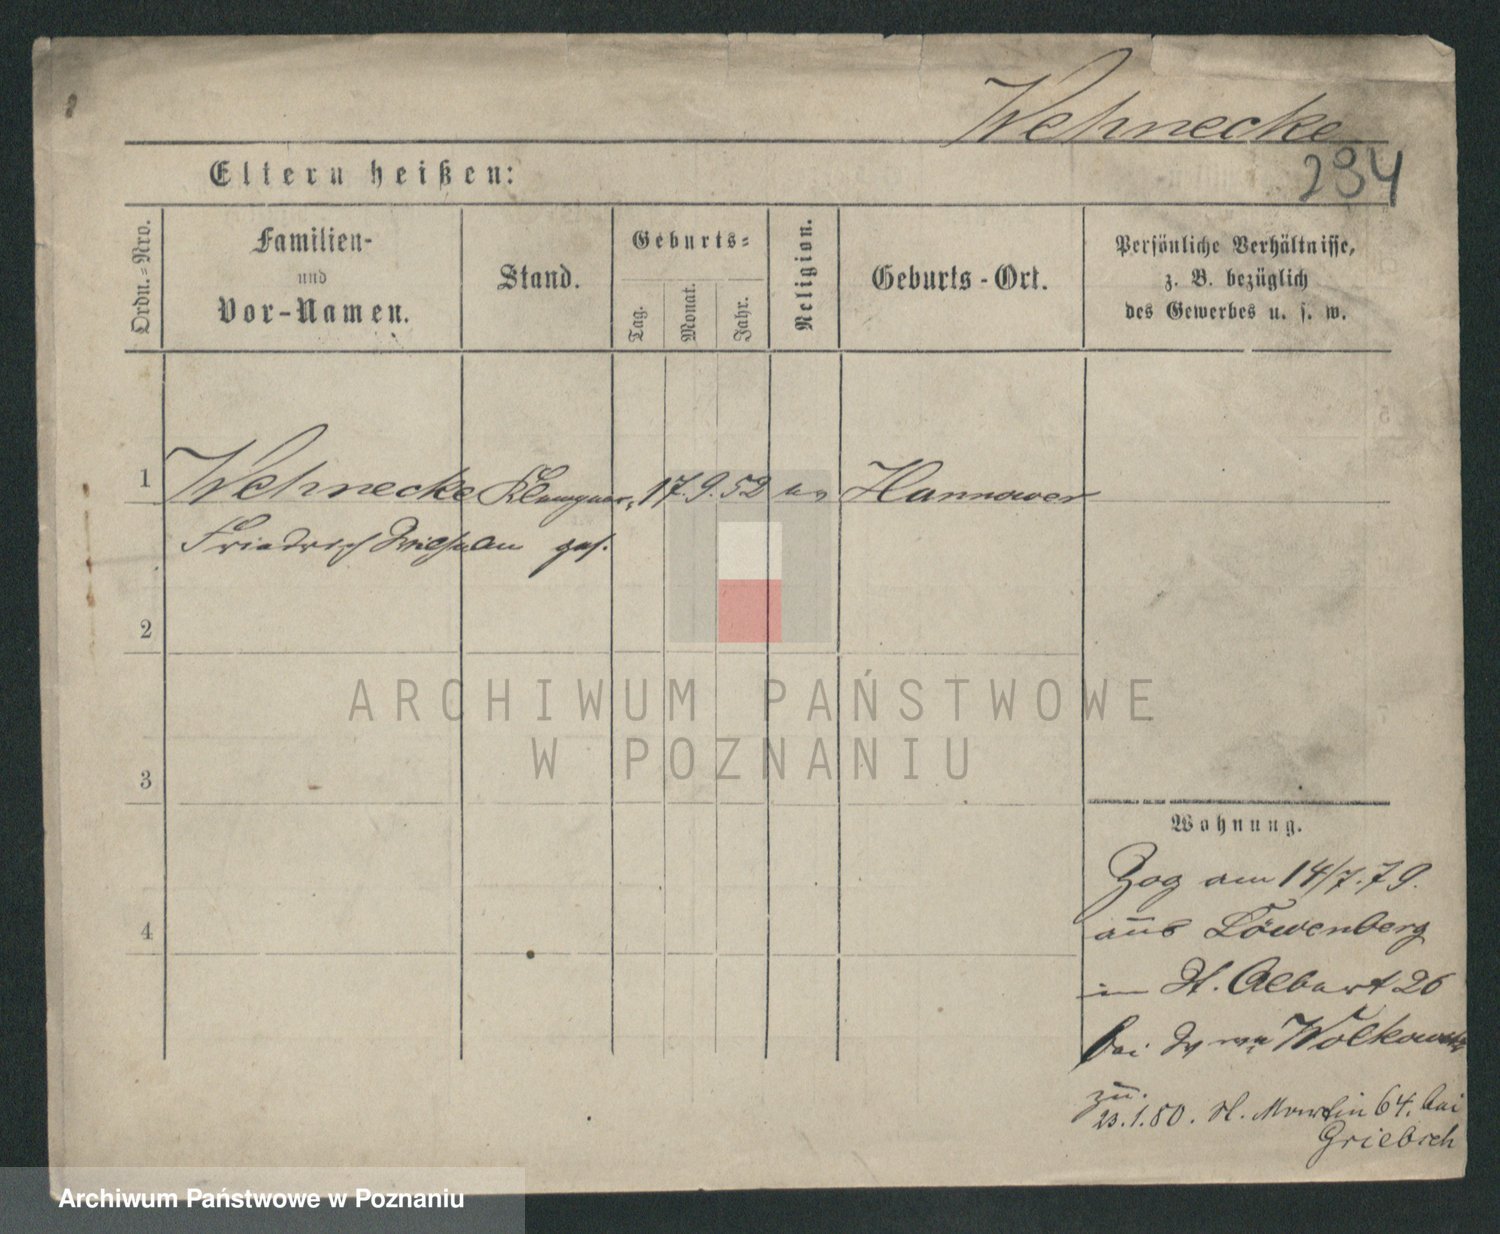 Wehnecke
234
Eltern heißen:
Ordn.=Nro.
Familien-
und
Vor-Namen.
Stand.
Geburts=
Tag.
Monat.
Jahr.
Religion.
Geburts-Ort.
Persönliche Verhältnisse,
z. B. bezüglich
des Gewerbes u. s. w.
1 Wehnecke Klempner, 17. 9. 52 ev Hannower
Friedrich Wilhelm geh.
2
3
4
Wohnung.
Zog am 14/7.79.
aus Löwenberg
in St. Adalbert 26
bei
zu.
23.1.80. St. Martin 64. bei
Griebsch
ARCHIWUM PAŃSTWOWE
W POZNANIU
Archiwum Państwowe w Poznaniu